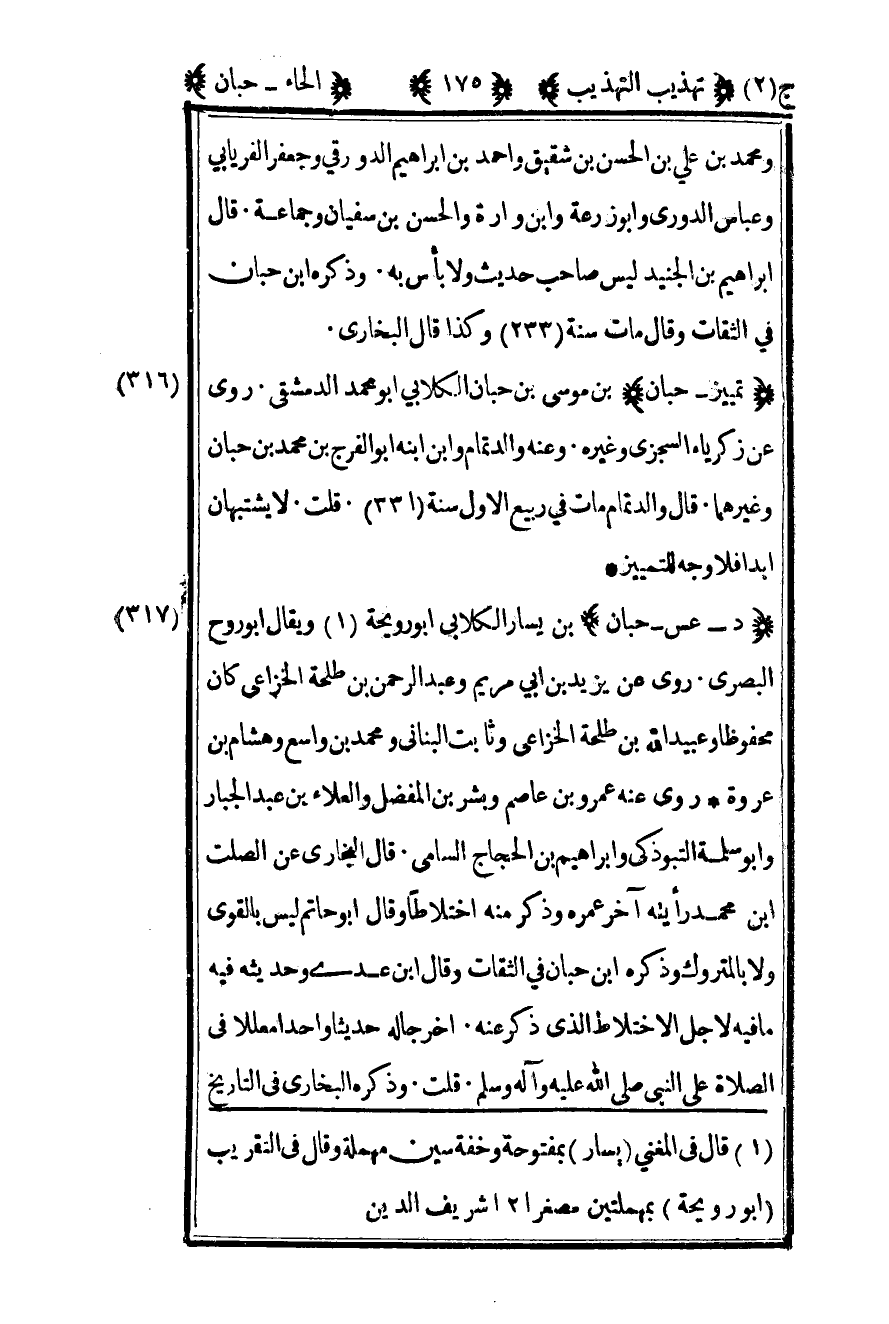 ج(٢) ﴿ تهذيب التهذيب ﴾ ﴿ ١٧٥ ﴾ ﴿ الحاء ـ حبان ﴾
ومحمد بن علي بن الحسن بن شقيق واحمد بن ابراهيم الدورقي وجعفر الفريابي
وعباس الدورى وابوزرعة وابن وارة والحسن بن سفيان وجماعة · قال
ابراهيم بن الجنيد ليس صاحب حديث ولا بأس به · وذكره ابن حبان
في الثقات وقال مات سنة (٢٣٣) وكذا قال البخارى ·
﴿ تمييز ـ حبان ﴾ بن موسى بن حبان الكلابي ابو محمد الدمشقى · روى (٣١٦)
عن زكرياء السجزى وغيره · وعنه والد تمام وابن ابنه ابوالفرج بن محمد بن حبان
وغيرهما · قال والد تمام مات في ربيع الاول سنة (٣٣١) · قلت · لا يشتبهان
ابدا فلا وجه للتمييز *
﴿ د ـ عس ـ حبان ﴾ بن يسار الكلابي ابورويحة (١) ويقال ابوروح (٣١٧)
البصرى · روى عن يزيد بن ابي مريم وعبدالرحمن بن طلحة الخزاعى كان
محفوظا وعبيدالله بن طلحة الخزاعى وثابت البنانى ومحمد بن واسع وهشام بن
عروة * روى عنه عمرو بن عاصم وبشر بن المفضل والعلاء بن عبدالجبار
وابوسلمة التبوذكى وابراهيم بن الحجاج السامى · قال البخارى عن الصلت
ابن محمد رأيته آخر عمره وذكر منه اختلاطًا وقال ابوحاتم ليس بالقوى
ولا بالمتروك وذكره ابن حبان في الثقات وقال ابن عدى وحديثه فيه
مافيه لاجل الاختلاط الذى ذكر عنه · اخرجا له حديثا واحدا معللا فى
الصلاة على النبى صلى الله عليه وآله وسلم · قلت · وذكره البخارى فى التاريخ
(١) قال فى المغني (يسار) بمفتوحة وخفة سين مهملة وقال فى التقريب
(ابورويحة) بمهملتين مصغرا ١٢ شريف الدين